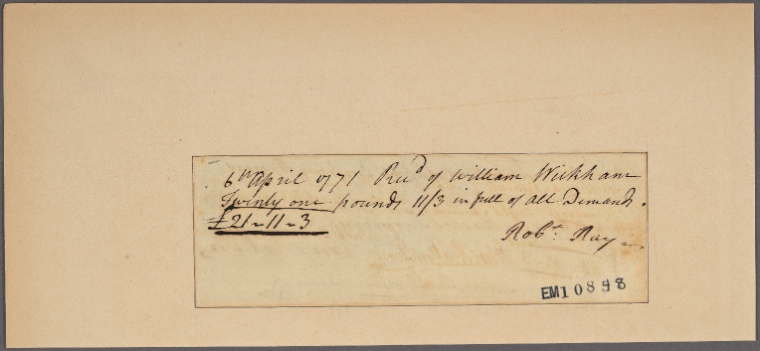 6th April 1771 Recd of William Wickham
Twenty one pounds 11/3 in full of all Demands.
£21-11-3
Robt Ray
EM10858